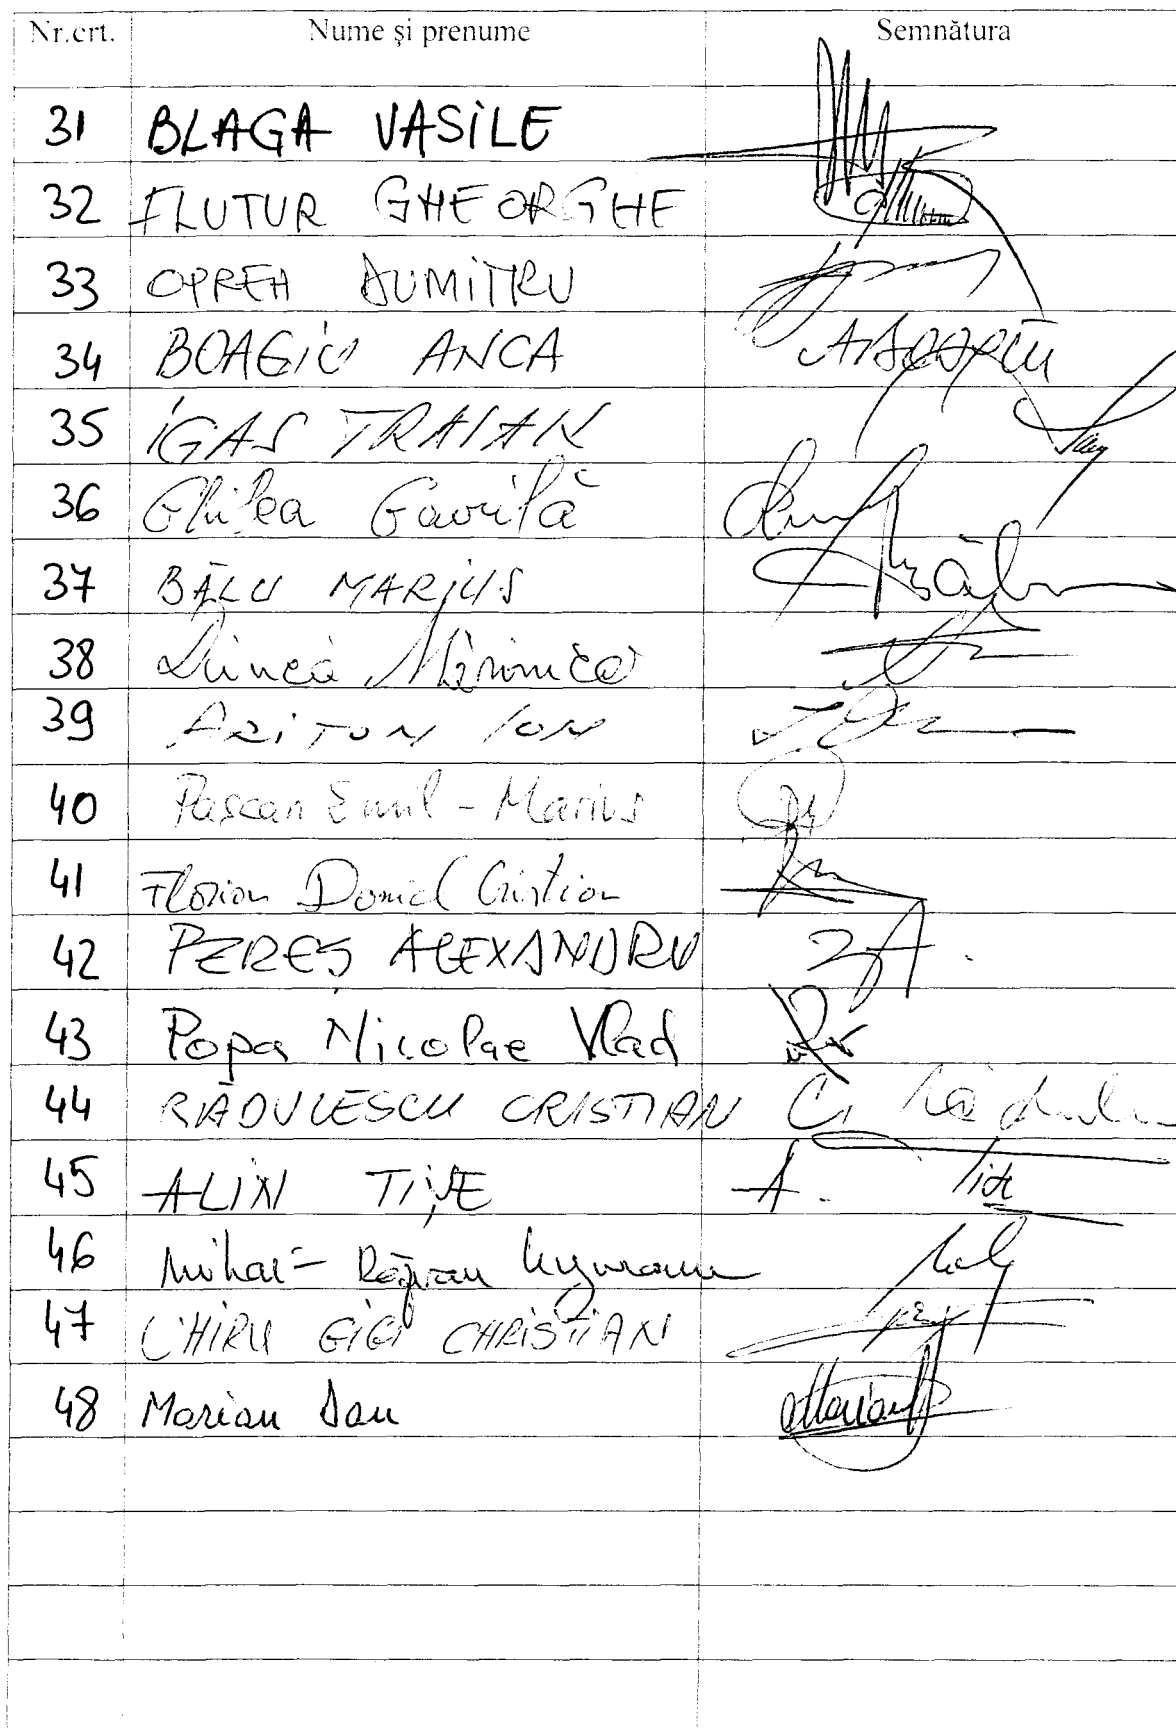 Nr.crt. Nume și prenume Semnătura
31 BLAGA VASILE
32 FLUTUR GHEORGHE
33 OPREA DUMITRU
34 BOAGIU ANCA
35 IGAS TRAIAN
36 Ghilea Gavrilă
37 BÂLU MARIUS
38 Duncă
39 ARITON ION
40 Pascan Emil - Marius
41 Florian Daniel Cristian
42 PEREȘ ALEXANDRU
43 Popa Nicolae Vlad
44 RĂDULESCU CRISTIAN
45 ALIN TIȘE A.
46 Mihai - Răzvan Ungureanu
47 CHIRU GIGI CHRISTIAN
48 Marian Dan Marian